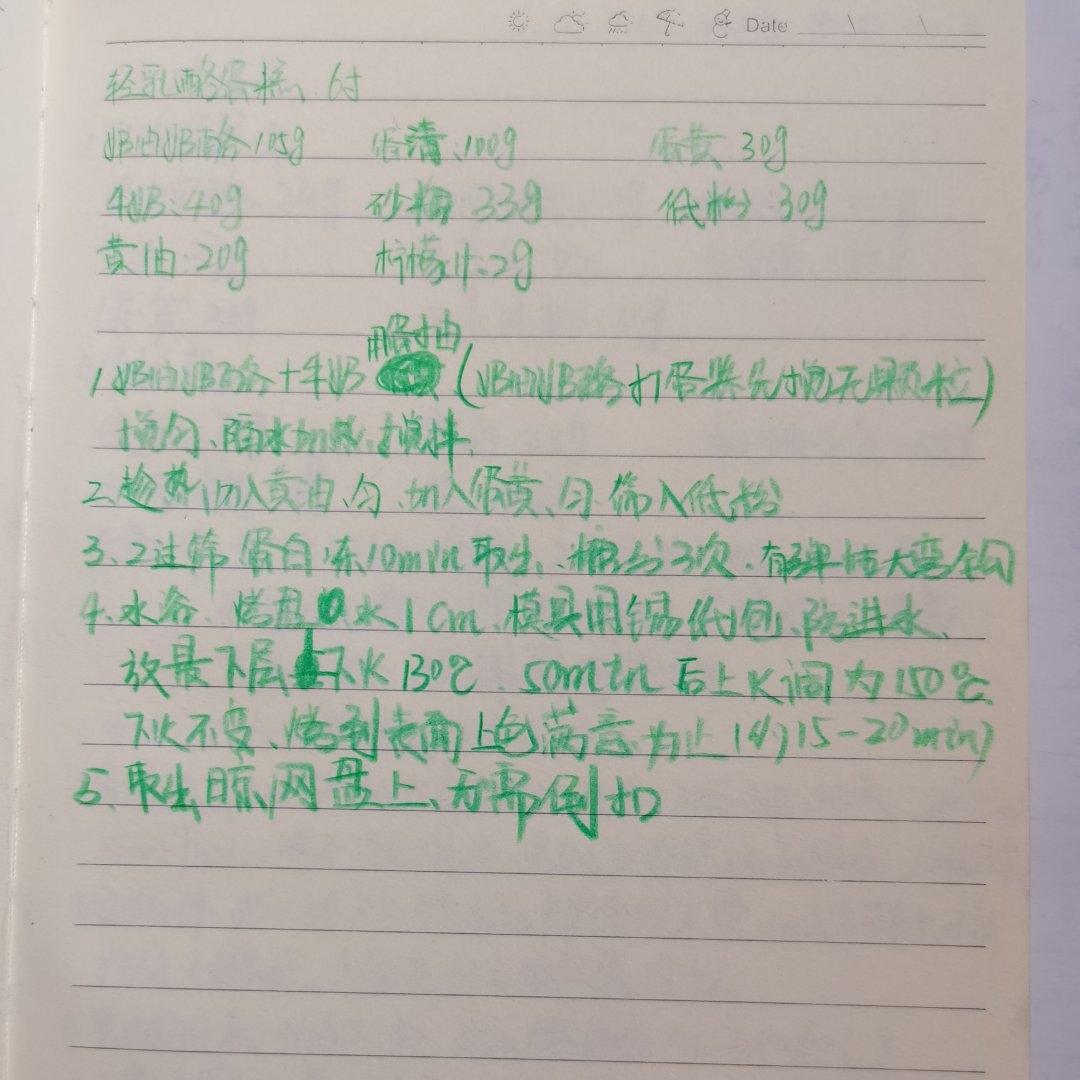 Date
轻乳酪蛋糕、6寸
奶油奶酪105g 蛋清:100g 蛋黄:30g
牛奶:40g 砂糖:33g 低粉:30g
黄油:20g 柠檬汁:2g
用蛋抽
1、奶油奶酪+牛奶(奶油奶酪打蛋器先搅无颗粒)
搅匀、隔水加热、搅拌.
2、趁热加入黄油、匀、加入蛋黄、匀 筛入低粉
3、2过筛 蛋白冻10min取出、糖分3次、有弹性大弯钩
4、水浴、烤盘水1cm、模具用锡纸包、防进水、
放最下层 上下火130℃、50min后上火调为150℃
下火不变、烤到表面上色满意为止(约15-20min)
5、取出晾网盘上、无需倒扣